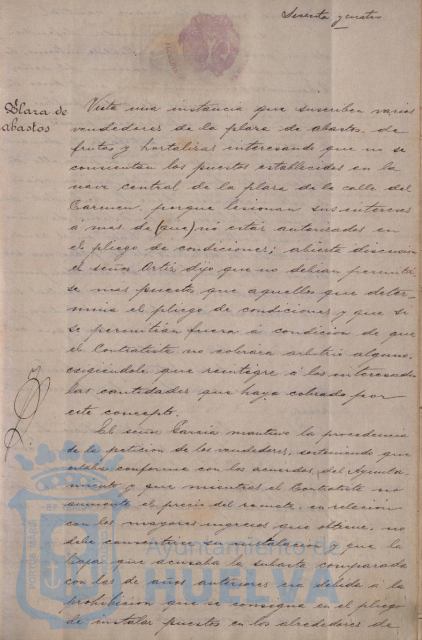 Sesenta y cuatro
Plaza de
abastos
Vista una instancia que suscriben varios
vendedores de la plaza de abastos, de
frutas y hortalizas interesando que no se
consientan los puestos establecidos en la
nave central de la plaza de la calle del
Carmen, porque lesionan sus intereses
a mas de (que) no estar autorizados en
el pliego de condiciones; abierta discusion
el señor Ortiz dijo que no debian permitir
se mas puestos que aquellos que deter-
mina el pliego de condiciones y que si
se permitian fuera á condición de que
el Contratista no cobrara arbitrio alguno,
exigiendole que reintegre á los interesados
las cantidades que haya cobrado por
este concepto.
El señor García mantuvo la procedencia
de la petición de los vendedores, sosteniendo que
estaba conforme con los acuerdos del Ayunta-
miento y que mientras el Contratista no
aumente el precio del remate, en relación
con los mayores ingresos que obtiene, no
debe consentirse su instalación y que la
baja que acusaba la subasta comparada
con las de años anteriores era debida á la
prohibición que se consigna en el pliego
de instalar puestos en los alrededores de
Ayuntamiento de
HUELVA